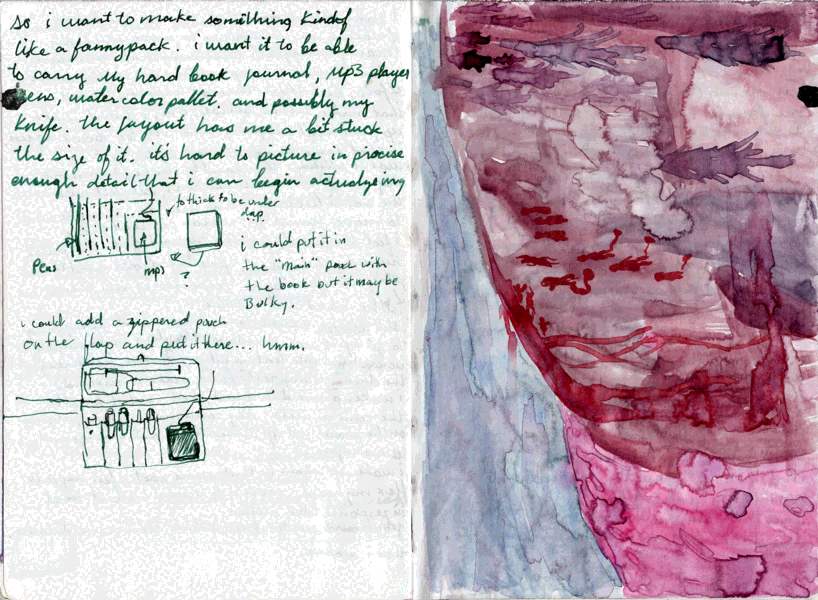 so i want to make something kindof
like a fannypack. i want it to be able
to carry my hard book journal, mp3 player
pens, watercolor pallet. and possibly my
knife. the layout has me a bit stuck
the size of it. it's hard to picture in precise
enough detail that i can begin actually
to thick to be under
flap
Pens
mp3
?
i could put it in
the "main" pouch with
the book but it may be
Bulky.
i could add a zippered pouch
on the flap and put it there... hmm.